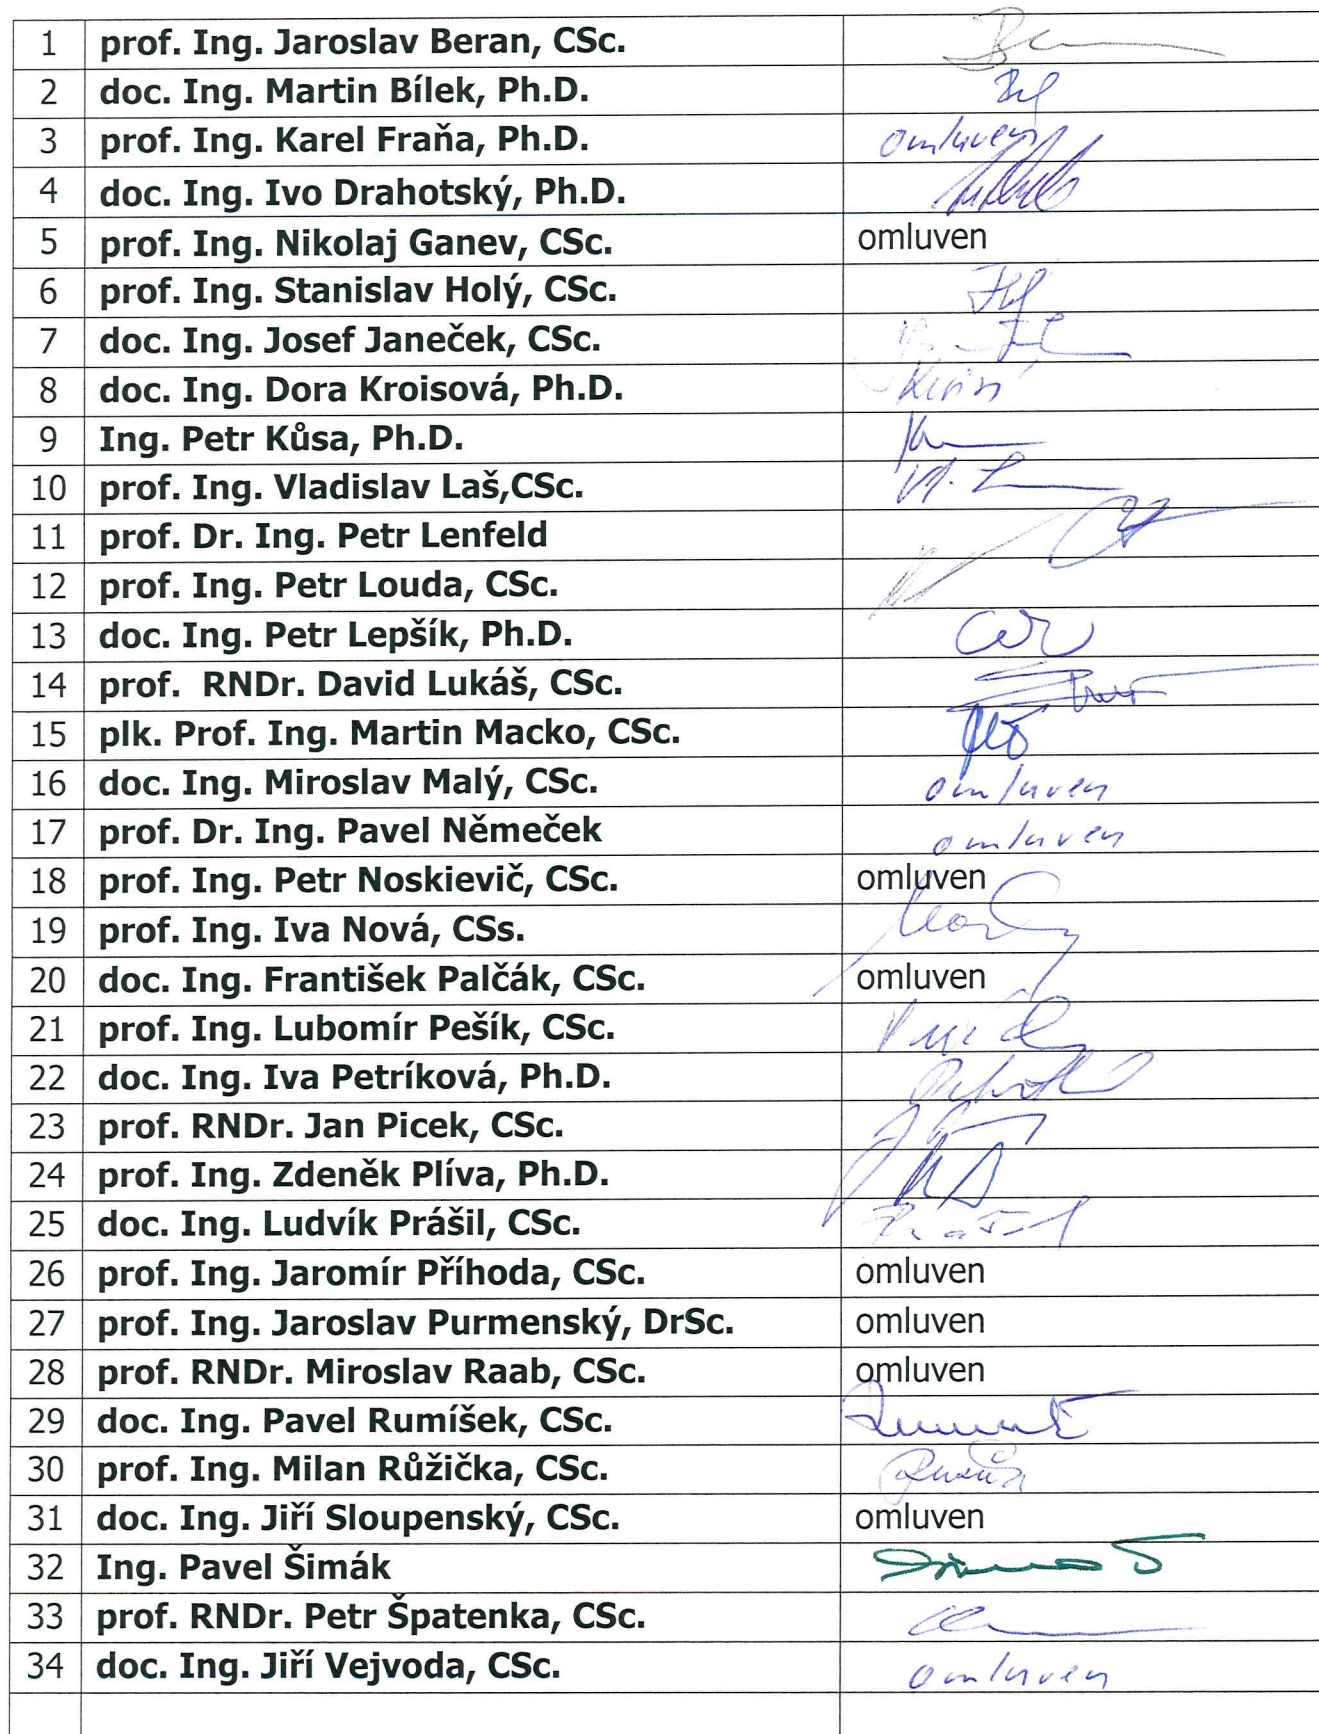 1 prof. Ing. Jaroslav Beran, CSc.
2 doc. Ing. Martin Bílek, Ph.D.
3 prof. Ing. Karel Fraňa, Ph.D. omluven
4 doc. Ing. Ivo Drahotský, Ph.D.
5 prof. Ing. Nikolaj Ganev, CSc. omluven
6 prof. Ing. Stanislav Holý, CSc.
7 doc. Ing. Josef Janeček, CSc.
8 doc. Ing. Dora Kroisová, Ph.D.
9 Ing. Petr Kůsa, Ph.D.
10 prof. Ing. Vladislav Laš,CSc.
11 prof. Dr. Ing. Petr Lenfeld
12 prof. Ing. Petr Louda, CSc.
13 doc. Ing. Petr Lepšík, Ph.D.
14 prof. RNDr. David Lukáš, CSc.
15 plk. Prof. Ing. Martin Macko, CSc.
16 doc. Ing. Miroslav Malý, CSc. omluven
17 prof. Dr. Ing. Pavel Němeček omluven
18 prof. Ing. Petr Noskievič, CSc. omluven
19 prof. Ing. Iva Nová, CSs.
20 doc. Ing. František Palčák, CSc. omluven
21 prof. Ing. Lubomír Pešík, CSc.
22 doc. Ing. Iva Petríková, Ph.D.
23 prof. RNDr. Jan Picek, CSc.
24 prof. Ing. Zdeněk Plíva, Ph.D.
25 doc. Ing. Ludvík Prášil, CSc.
26 prof. Ing. Jaromír Příhoda, CSc. omluven
27 prof. Ing. Jaroslav Purmenský, DrSc. omluven
28 prof. RNDr. Miroslav Raab, CSc. omluven
29 doc. Ing. Pavel Rumíšek, CSc.
30 prof. Ing. Milan Růžička, CSc.
31 doc. Ing. Jiří Sloupenský, CSc. omluven
32 Ing. Pavel Šimák
33 prof. RNDr. Petr Špatenka, CSc.
34 doc. Ing. Jiří Vejvoda, CSc. omluven